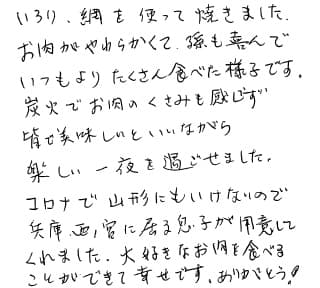 いろり、網を使って焼きました。
お肉がやわらかくて、孫も喜んで
いつもよりたくさん食べた様子です。
炭火でお肉のくさみも感じず
皆で美味しいといいながら
楽しい一夜を過ごせました。
コロナで山形にもいけないので
兵庫、西ノ宮に居る息子が用意して
くれました。大好きなお肉を食べる
ことができて幸せです。ありがとう!